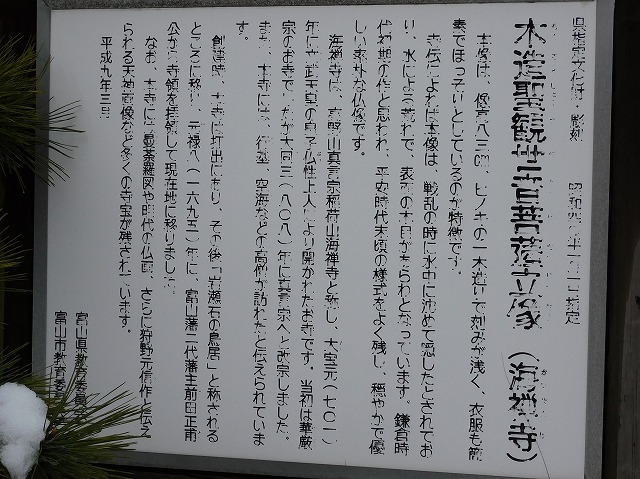 県指定文化財 彫刻 昭和四〇年一〇月一日指定
木造聖観世音菩薩立像（海禅寺）
本像は、像高八三㎝、ヒノキの一木造りで刻みが浅く、衣服も簡
素でほっそいとしているのが特徴です。
寺伝によれば本像は、戦乱の時に水中に沈めて隠したとされてお
り、水による荒れで、表面の木目があらわとなっています。鎌倉時
代初期の作と思われ、平安時代末頃の様式をよく残し、穏やかで優
しい素朴な仏像です。
海禅寺は、高野山真言宗稲荷山海禅寺と称し、大宝元（七〇一）
年に文武天皇の皇子仏性上人により開かれたお寺です。当初は華厳
宗のお寺でしたが大同三（八〇八）年に真言宗へと改宗しました。
また、本寺には、行基、空海などの高僧が訪れたと伝えられていま
す。
創建時、本寺は打出にあり、その後「岩瀬石の鳥居」と称される
ところに移り、元禄八（一六九五）年に、富山藩二代藩主前田正甫
公から寺領を拝領して現在地に移りました。
なお、本寺には曼荼羅図や時代の仏画、さらに狩野元信作と伝え
られる天神画像など多くの寺宝が残されています。
平成九年三月
富山県教育委員会
富山市教育委